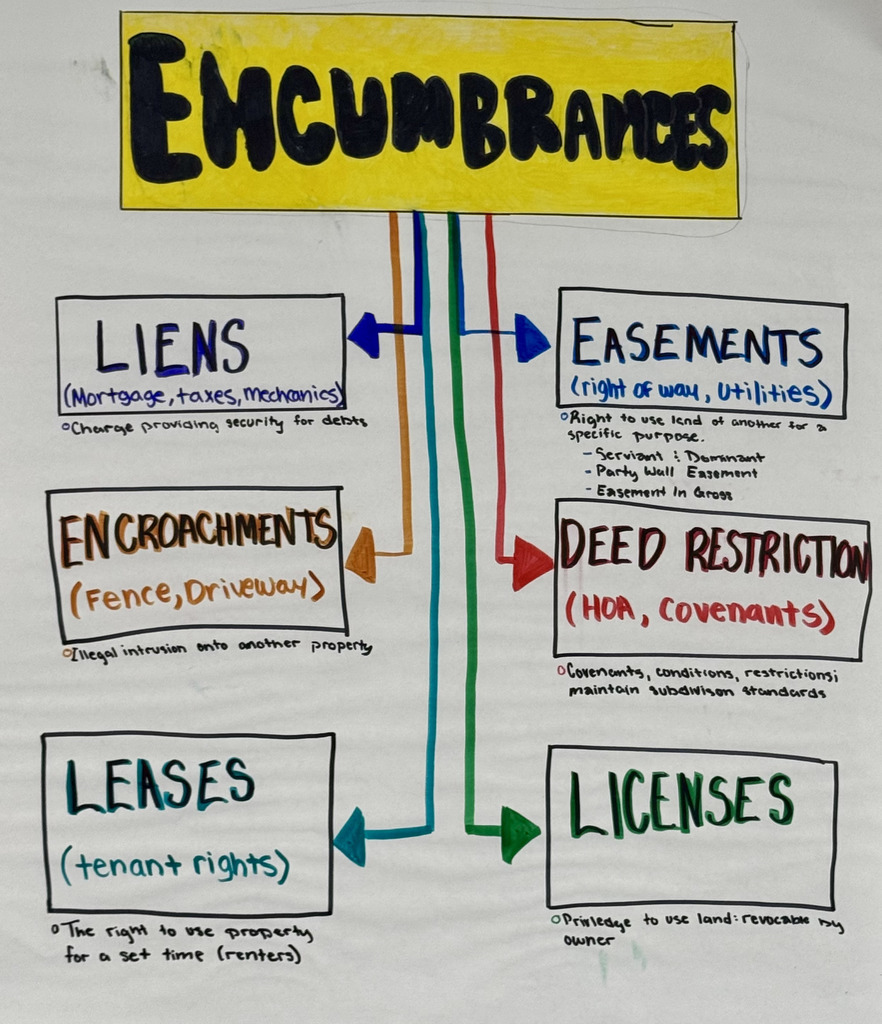 ENCUMBRANCES
LIENS
(Mortgage, taxes, mechanics)
Charge providing security for debts
EASEMENTS
(right of way, utilities)
Right to use land of another for a
specific purpose.
- Serviant : Dominant
- Party Wall Easement
- Easement In Gross
ENCROACHMENTS
(Fence, Driveway)
Illegal intrusion onto another property
DEED RESTRICTION
(HOA, Covenants)
Covenants, conditions, restrictions;
maintain subdivison standards
LEASES
(tenant rights)
The right to use property
for a set time (renters)
LICENSES
Priviledge to use land: revocable by
owner